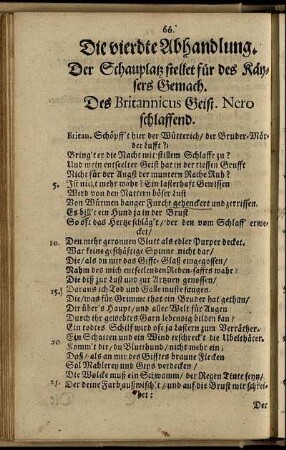 66.
Die vierdte Abhandlung.
Der Schauplatz stellet für des Käy-
sers Gemach.
Des Britannicus Geist. Nero
schlaffend.
Britan. Schöpff't hier der Wütterich/ der Bruder-Mör-
der Lufft?
Bring't er die Nacht mit stillem Schlaffe zu?
Und mein entseelter Geist hat in der tieffen Grufft
Nicht für der Angst der muntern Rache Ruh?
5. Ist nicht mehr wahr? Ein lasterhaft Gewissen
Wird von den Nattern böser Lust
Von Würmen banger Furcht gehencket und zerrissen.
Es bill't ein Hund ja in der Brust
So oft das Hertze schläg't/ der den vom Schlaff erwe-
cket/
10. Den mehr geronnen Blutt als edler Purper decket.
War keine geschäfftige Spinne nicht dar/
Die/ als du mir das Gifft-Glaß eingegossen/
Nahm des mich entseelenden Reben-safftes wahr?
Die diß zur Lust und zur Artzney genossen/
15. Daraus ich Tod und Galle muste saugen.
Die/ was für Grimm es that ein Bruder hat gethan/
Dir über's Haupt/ und aller Welt für Augen
Durch ihr gewebtes Garn lebendig bilden kan?
Ein todtes Schilf wird oft ja lässern zum Verräther.
Ein Schatten und ein Wind erschreck't die Ubelthäter.
20. Komm't dir/ du Blutthund/ nicht mehr ein/
Daß/ als an mir des Gifftes braune Flecken
Sol Mahlerey und Gips verdecken/
Die Wolcke muß ein Schwamm/ der Regen Tinte seyn/
25. Der deine Farb außwisch't/ und auf die Brust mir schrei-
bet:
Der